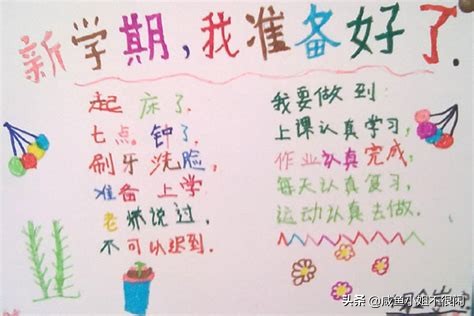 新学期，我准备好了.
起床了.
七点钟了.
刷牙洗脸,
准备上学
老师说过,
不可以迟到.
我要做到:
上课认真学习,
作业认真完成,
每天认真复习,
运动认真去做.
头条 @咸鱼小姐不很闲